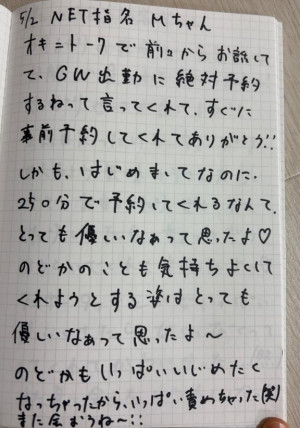 5/2 NET指名 Mちゃん
オキニトークで前々からお話して
て、GW出勤に絶対予約
するねって言ってくれて、すぐに
事前予約してくれてありがとう!!
しかも、はじめましてなのに、
250分で予約してくれるなんて、
とっても優しいなぁって思ったよ♡
のどかのことも気持ちよくして
くれようとする姿はとっても
優しいなぁって思ったよ～
のどかもいっぱいいじめたく
なっちゃったから、いっぱい責めちゃった(笑)
また会おうね～!!